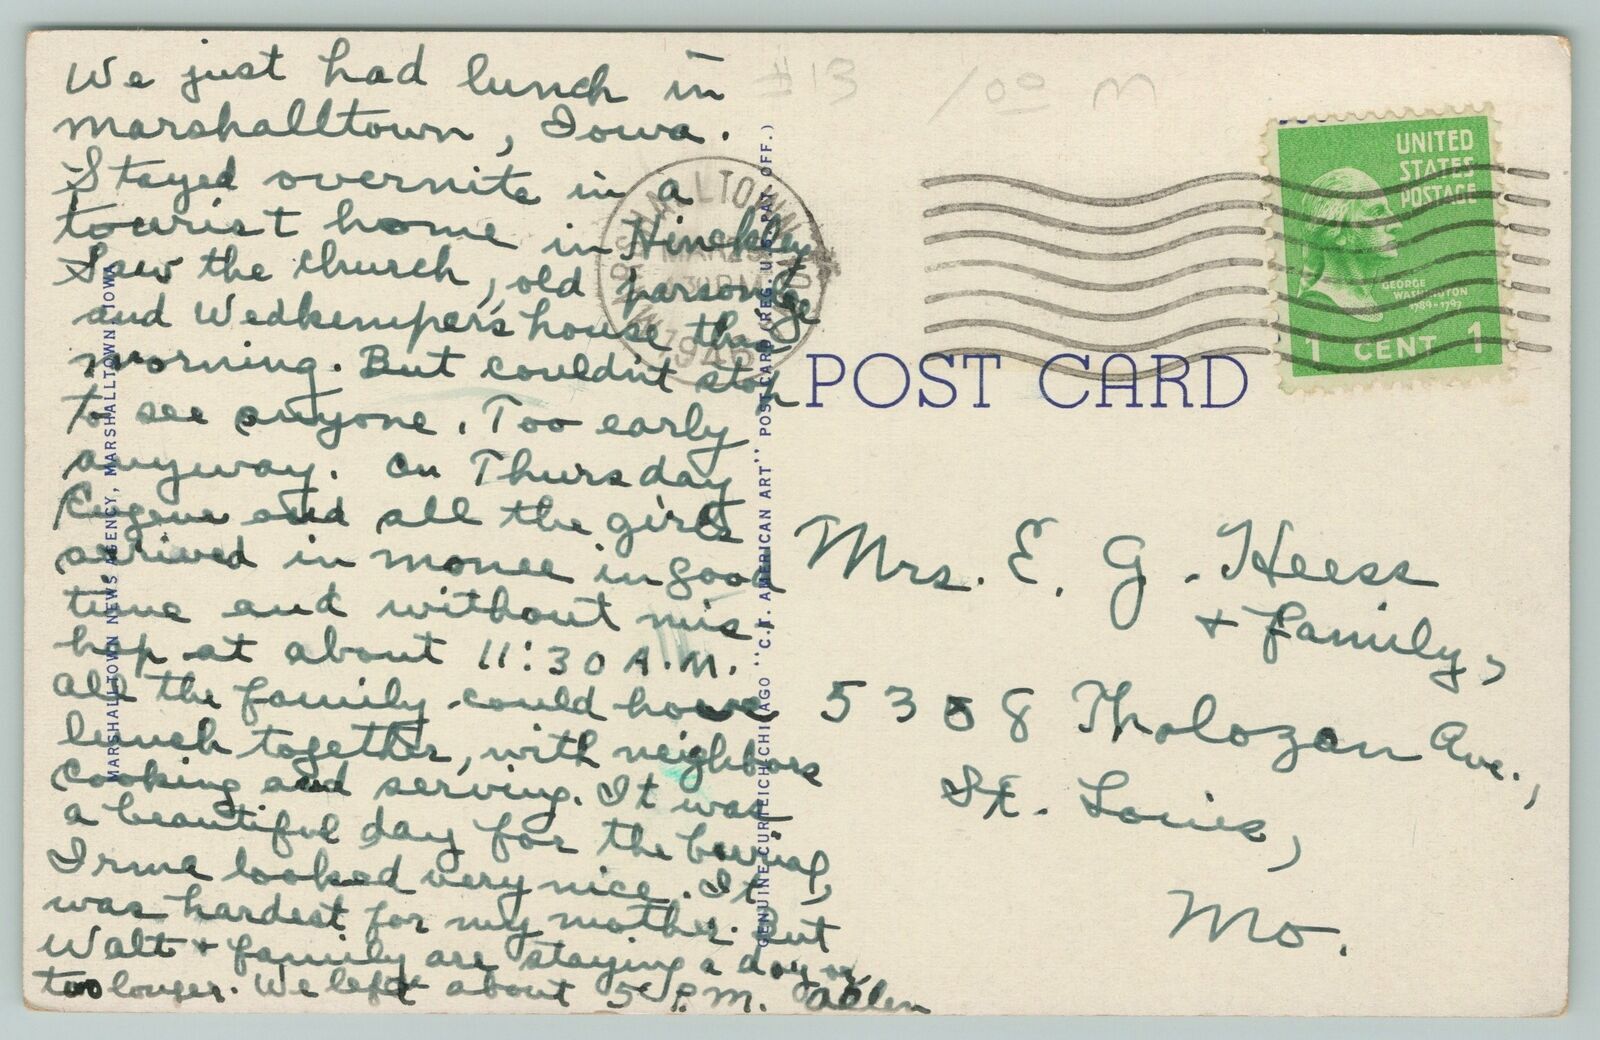 We just had lunch in
Marshalltown, Iowa.
Stayed overnite in a
tourist home in Hinckley
Saw the church, old parsonage
and Wedkempers house that
morning. But couldn't stop
to see anyone. Too early
anyway. On Thursday
Eugene and all the girls
arrived in Monee in good
time and without mis
hap at about 11:30 A.M.
All the family could have
lunch together, with neighbors
cooking and serving. It was
a beautiful day for the burial,
Irma looked very nice. It
was hardest for my mother. But
Walt + family are staying a day or
two longer. We left about 5 P.M. Allen
#13
1 00 M
MARSHALLTOWN
MAR 25
30 PM
1946
IOWA
UNITED
STATES
POSTAGE
GEORGE
WASHINGTON
1789-1797
1 CENT 1
POST CARD
Mrs. E. G. Heess
+ Family,
5308 Tholozan Ave.,
St. Louis,
Mo.
MARSHALLTOWN NEWS AGENCY, MARSHALLTOWN, IOWA
GENUINE CURTEICH-CHICAGO "C.T. AMERICAN ART" POST CARD (REG. U.S. PAT. OFF.)